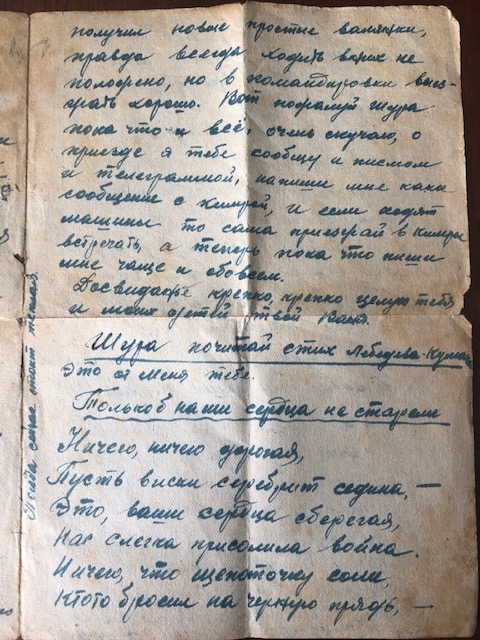 получил новые простые валянки,
правда всегда ходить в них не
положено, но в командировки выез-
жать хорошо. Вот пожалуй Шура
пока что и всё, очень скучаю, о
приезде я тебе сообщу и писмом
и телеграммой, напиши мне како
сообщение с Кимрой, и если ходят
машины то сама приезжай в Кимры
встречать, а теперь пока что пиши
мне чаще и обо всем.
Досвиданье крепко, крепко целую тебя
и моих детей твой Вася.
Шура почитай стих Лебедева-Кумач
Это от меня тебе.
Только б наши сердца не старели
Ничего, ничего дорогая,
Пусть виски серебрит седина, —
Это, ваши сердца сберегая,
Нас слегка присолила война.
Ничего, что щепоточку соли,
Ктото бросил на черную прядь, —
Погода сейчас стоит теплая.